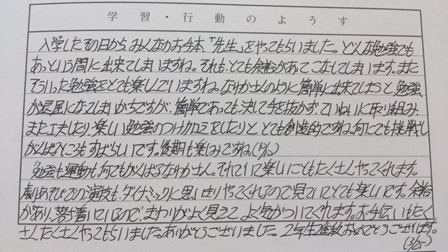 学習・行動のようす
入学したその日から みんなのお手本、「先生」をやってもらいました。どんな勉強でも
あっという間に出来てしまいますね。それも、とても余裕があってこなしてしまいます。また
そういった勉強をとても楽しんでいますね。なかむつのように簡単に出来てしまうと、勉強
が退屈になってしまいがちですが、簡単であっても決して手を抜かず、ていねいに取り組み、
また工夫したり楽しい勉強のつけ加えをしたりと、とても創造的ですね。何にでも挑戦し
がんばることもすばらしいです。後期も楽しみですね。
勉強も運動も何でもがんばる さん。それでいて楽しいこともたくさんやってくれます。
劇あそびでの演技も、ダイナミックに思いきりやってくれるので見ていてとても楽しいです。余裕
があり、落ち着いているので、まわりがよく見えて よく気がついてくれます。お手伝いもたく
さんたくさんやってもらいました。ありがとうございました。2年生進級おめでとうございます。